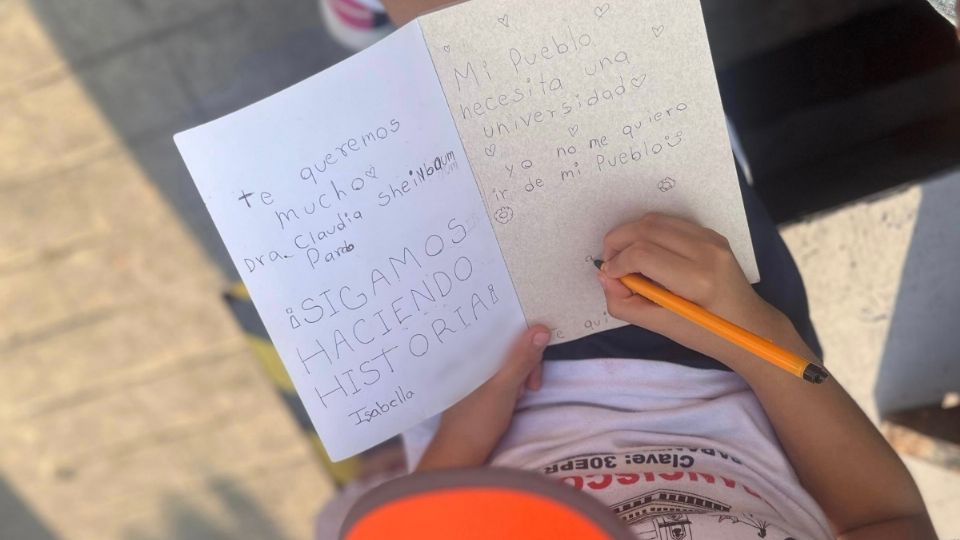 te queremos
mucho
Dra. Claudia Sheinbaum
Pardo
¡SIGAMOS
HACIENDO
HISTORIA!
Isabella
Mi Pueblo
necesita una
universidad
yo no me quiero
ir de mi Pueblo
Te qui
Clave: 30EPR